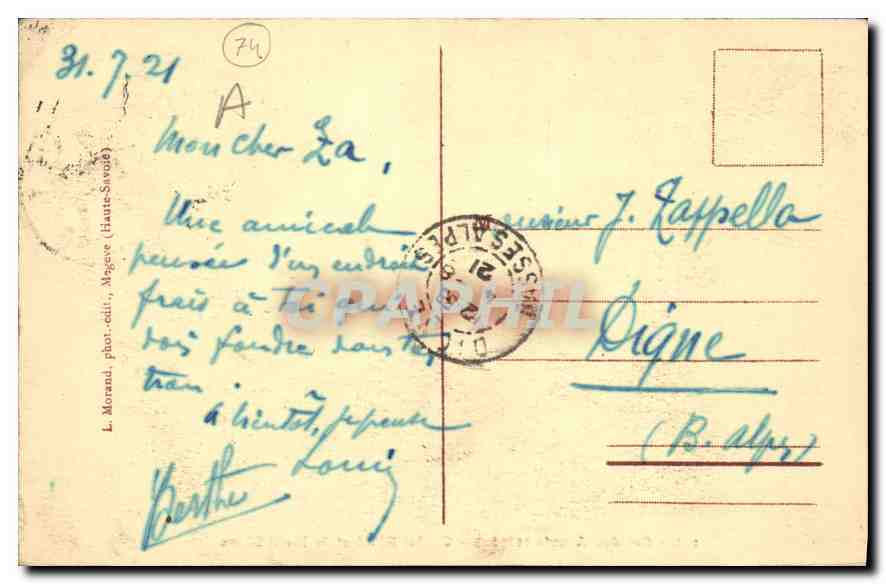 74
A
31.7.21
Mon cher Za,
Une amicale
pensée d'un endroit
frais à toi qui
dois fondre dans ton
trou.
à bientôt, je pense
Louis
Berthe
L. Morand, phot.-edit., Megève (Haute-Savoie)
Monsieur J. Zappella
Digne
(B. Alpes)
BASSES ALPES
21
CPAPHIL